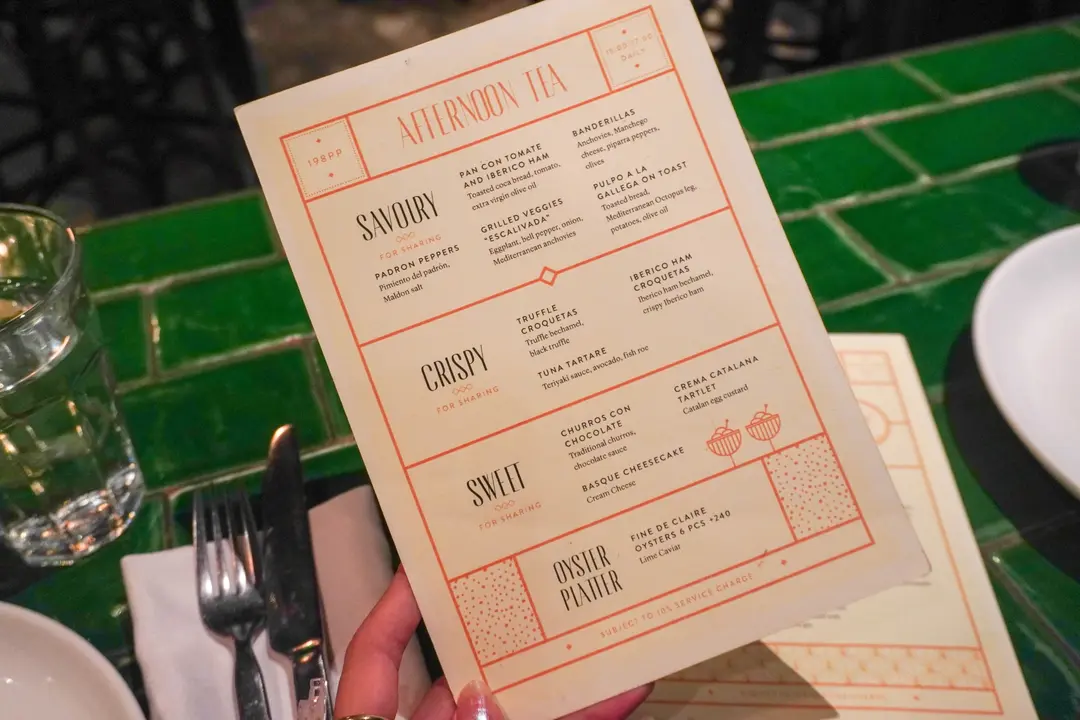 AFTERNOON TEA
198PP
DAILY
SAVOURY
FOR SHARING
PADRON PEPPERS
Pimiento del padrón,
Maldon salt
PAN CON TOMATE
AND IBERICO HAM
Toasted coca bread, tomato,
extra virgin olive oil
GRILLED VEGGIES
"ESCALIVADA"
Eggplant, bell pepper, onion,
Mediterranean anchovies
BANDERILLAS
Anchovies, Manchego
cheese, piparra peppers,
olives
PULPO A LA
GALLEGA ON TOAST
Toasted bread,
Mediterranean Octopus leg,
potatoes, olive oil
CRISPY
FOR SHARING
TRUFFLE
CROQUETAS
Truffle bechamel,
black truffle
TUNA TARTARE
Teriyaki sauce, avocado, fish roe
IBERICO HAM
CROQUETAS
Iberico ham bechamel,
crispy Iberico ham
SWEET
FOR SHARING
CHURROS CON
CHOCOLATE
Traditional churros,
chocolate sauce
BASQUE CHEESECAKE
Cream Cheese
CREMA CATALANA
TARTLET
Catalan egg custard
OYSTER
PLATTER
FINE DE CLAIRE
OYSTERS 6 PCS +240
Lime Caviar
SUBJECT TO 10% SERVICE CHARGE